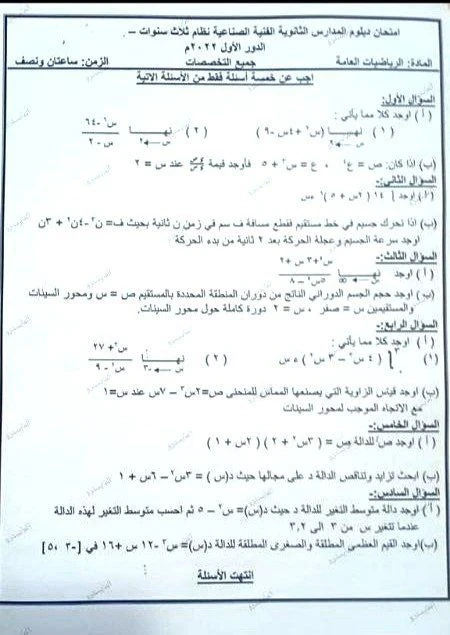 امتحان دبلوم المدارس الثانوية الفنية الصناعية نظام ثلاث سنوات –
الدور الأول ٢٠٢٢م
المادة: الرياضيات العامة جميع التخصصات الزمن: ساعتان ونصف
اجب عن خمسة أسئلة فقط من الأسئلة الاتية
السؤال الأول:
( أ ) اوجد كلا مما يأتي :
( ١ ) نهــا س←٢ (س٢ + ٤س - ٩) ( ٢ ) نهــا س←٢ س٢ - ٦٤ / س - ٢
(ب) اذا كان: ص = ع٤ ، ع = س٢ + ٥ فأوجد قيمة ءص/ءس عند س = ٢
السؤال الثاني:-
(أ) اوجد ∫ ١٤ ( ٢س + ٥ )٦ ءس
(ب) اذا تحرك جسيم في خط مستقيم فقطع مسافة ف سم في زمن ن ثانية بحيث ف= ن٣ -٤ن٢ + ٣ن
اوجد سرعة الجسيم وعجلة الحركة بعد ٢ ثانية من بدء الحركة
السؤال الثالث:-
( أ ) أوجد نهــا س←∞ س٢+٣ س +٢ / ٥س٢ - ٨
(ب) اوجد حجم الجسم الدوراني الناتج من دوران المنطقة المحددة بالمستقيم ص = س ومحور السينات
والمستقيمين س = صفر ، س = ٢ دورة كاملة حول محور السينات.
السؤال الرابع:-
( أ ) اوجد كلا مما يأتي :
(١) ∫ ( ٤س٣ - ٣س٢ ) ءس ( ٢ ) نهــا س←-٣ س٣ + ٢٧ / س٢ - ٩
(ب) اوجد قياس الزاوية التي يصنعها المماس للمنحنى ص=٢س٣ - ٧س عند س=١
مع الاتجاه الموجب لمحور السينات
السؤال الخامس:-
( أ ) اوجد صَ للدالة ص = ( ٣س٢ + ٢ ) ( ٢س + ١ )
(ب) ابحث تزايد وتناقص الدالة د على مجالها حيث د(س) = ٣س٢ - ٦س + ١
السؤال السادس:-
( أ ) اوجد دالة متوسط التغير للدالة د حيث د(س)= س٢ - ٥ ثم احسب متوسط التغير لهذه الدالة
عندما تتغير س من ٣ الى ٣,٢
(ب)اوجد القيم العظمى المطلقة والصغرى المطلقة للدالة د(س)= س٣ -١٢ س +١٦ في [ -٣ ،٥]
انتهت الأسئلة